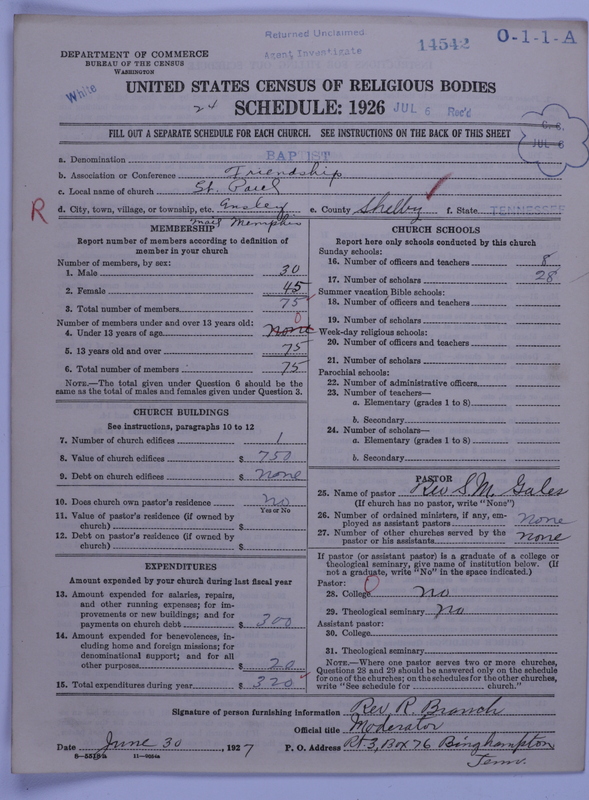 Returned Unclaimed
Agent Investigate
14542
O-1-1-A
DEPARTMENT OF COMMERCE
BUREAU OF THE CENSUS
WASHINGTON
White
UNITED STATES CENSUS OF RELIGIOUS BODIES
24
SCHEDULE: 1926
JUL 6 Rec'd
FILL OUT A SEPARATE SCHEDULE FOR EACH CHURCH. SEE INSTRUCTIONS ON THE BACK OF THIS SHEET
JUL 6
a. Denomination BAPTIST
b. Association or Conference Friendship
c. Local name of church St. Paul
R
d. City, town, village, or township, etc. Ensley e. County Shelby f. State TENNESSEE
mail Memphis
MEMBERSHIP
Report number of members according to definition of
member in your church
Number of members, by sex:
1. Male 30
2. Female 45
3. Total number of members 75
Number of members under and over 13 years old:
0
4. Under 13 years of age none
5. 13 years old and over 75
6. Total number of members 75
NOTE.—The total given under Question 6 should be the
same as the total of males and females given under Question 3.
CHURCH BUILDINGS
See instructions, paragraphs 10 to 12
7. Number of church edifices 1
8. Value of church edifices $ 750
9. Debt on church edifices $ none
10. Does church own pastor's residence No
Yes or No
11. Value of pastor's residence (if owned by
church) $
12. Debt on pastor's residence (if owned by
church) $
EXPENDITURES
Amount expended by your church during last fiscal year
13. Amount expended for salaries, repairs,
and other running expenses; for im-
provements or new buildings; and for
payments on church debt $ 300
14. Amount expended for benevolences, in-
cluding home and foreign missions; for
denominational support; and for all
other purposes $ 20
15. Total expenditures during year $ 320
CHURCH SCHOOLS
Report here only schools conducted by this church
Sunday schools:
16. Number of officers and teachers 8
17. Number of scholars 28
Summer vacation Bible schools:
18. Number of officers and teachers
19. Number of scholars
Week-day religious schools:
20. Number of officers and teachers
21. Number of scholars
Parochial schools:
22. Number of administrative officers
23. Number of teachers—
a. Elementary (grades 1 to 8)
b. Secondary
24. Number of scholars—
a. Elementary (grades 1 to 8)
b. Secondary
PASTOR
25. Name of pastor Rev S. M. Gales
(If church has no pastor, write "None")
26. Number of ordained ministers, if any, em-
ployed as assistant pastors none
27. Number of other churches served by the
pastor or his assistants none
If pastor (or assistant pastor) is a graduate of a college or
theological seminary, give name of institution below. (If
not a graduate, write "No" in the space indicated.)
Pastor:
28. College No
29. Theological seminary no
Assistant pastor:
30. College
31. Theological seminary
NOTE.—Where one pastor serves two or more churches,
Questions 28 and 29 should be answered only on the schedule
for one of the churches; on the schedules for the other churches,
write "See schedule for church."
Signature of person furnishing information Rev R. Branch
Official title Moderator
Date June 30, 1927 P. O. Address Rt 3, Box 76 Binghampton
Tenn.
8—5518a 11—9054a